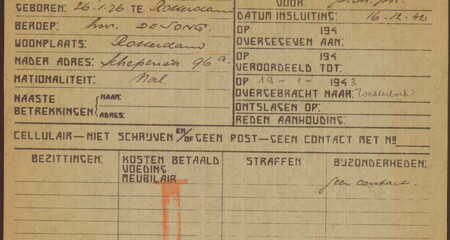 GEBOREN: 26.1.96 te Rotterdam
VOOR:
BEROEP: hvr. DE JONG.
DATUM INSLUITING: 16-12-42
WOONPLAATS: Rotterdam
OP 194
OVERGEGEVEN AAN:
NADER ADRES: Schepenstr 96a.
OP 194
VEROORDEELD TOT:
NATIONALITEIT: Ned.
OP 19-1-1943
OVERGEBRACHT NAAR: Westerbork
NAASTE BETREKKINGEN { NAAM:
ADRES:
ONTSLAGEN OP:
REDEN AANHOUDING:
CELLULAIR—NIET SCHRIJVEN EN/OF GEEN POST—GEEN CONTACT MET No
BEZITTINGEN: KOSTEN BETAALD STRAFFEN BIJZONDERHEDEN:
VOEDING
MEUBILAIR
geen contact.